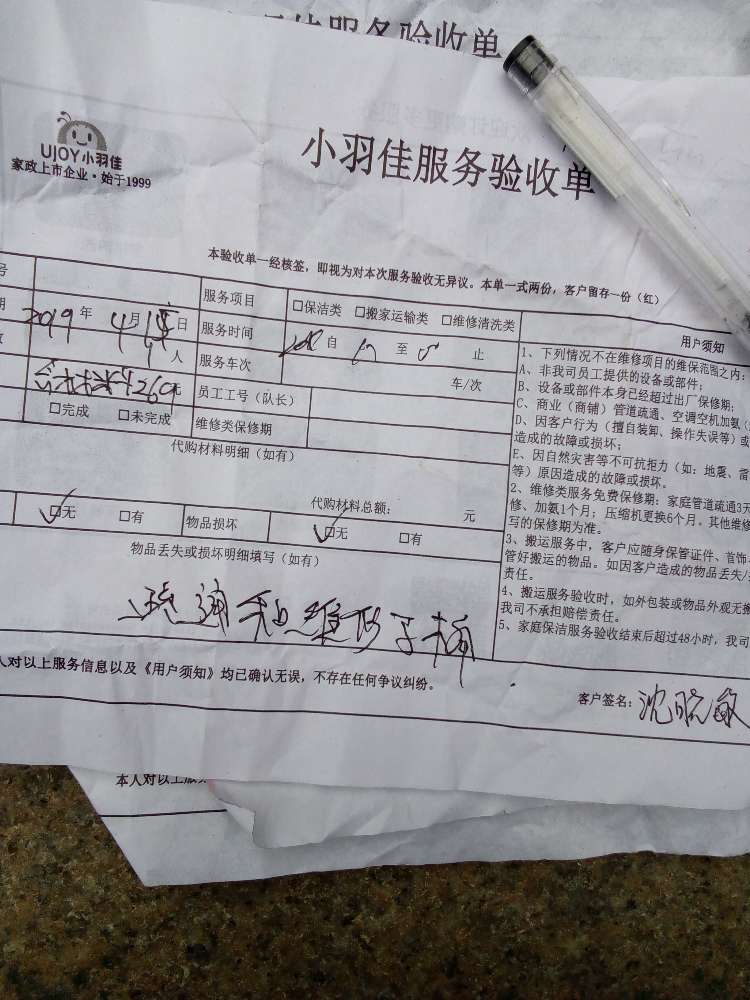 服务验收单
UJOY小羽佳
家政上市企业·始于1999
小羽佳服务验收单
本验收单一经核签，即视为对本次服务验收无异议。本单一式两份，客户留存一份（红）
号
服务项目 □保洁类 □搬家运输类 □维修清洗类
期 2019年 4月 日 服务时间 自 至 止
人 服务车次 车/次
260元 员工工号（队长）
□完成 □未完成 维修类保修期
代购材料明细（如有）
代购材料总额： 元
□无 □有 物品损坏 □无 □有
物品丢失或损坏明细填写（如有）
疏通和维修
用户须知
1、下列情况不在维修项目的维保范围之内：
A、非我司员工提供的设备或部件；
B、设备或部件本身已经超过出厂保修期；
C、商业（商铺）管道疏通、空调空机加氨
D、因客户行为（擅自装卸、操作失误等）或
造成的故障或损坏；
E、因自然灾害等不可抗拒力（如：地震、雷
等）原因造成的故障或损坏。
2、维修类服务免费保修期：家庭管道疏通3天
修、加氨1个月；压缩机更换6个月。其他维修
写的保修期为准。
3、搬运服务中，客户应随身保管证件、首饰
管好搬运的物品。如因客户造成的物品丢失/
责任。
4、搬运服务验收时，如外包装或物品外观无
我司不承担赔偿责任。
5、家庭保洁服务验收结束后超过48小时，我司
人对以上服务信息以及《用户须知》均已确认无误，不存在任何争议纠纷。
客户签名：沈晓敏
本人对以上服